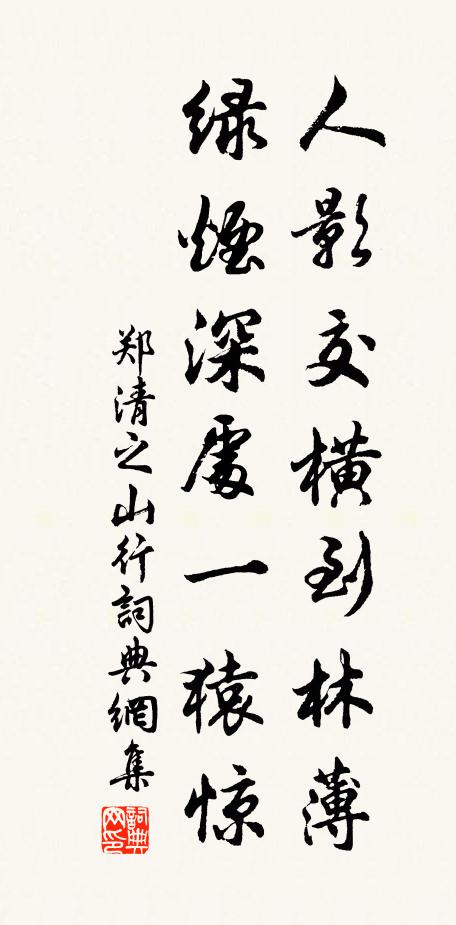 人影交横到林薄
绿烟深處一猿惊
郑清之山行詞典網集
詞典网印